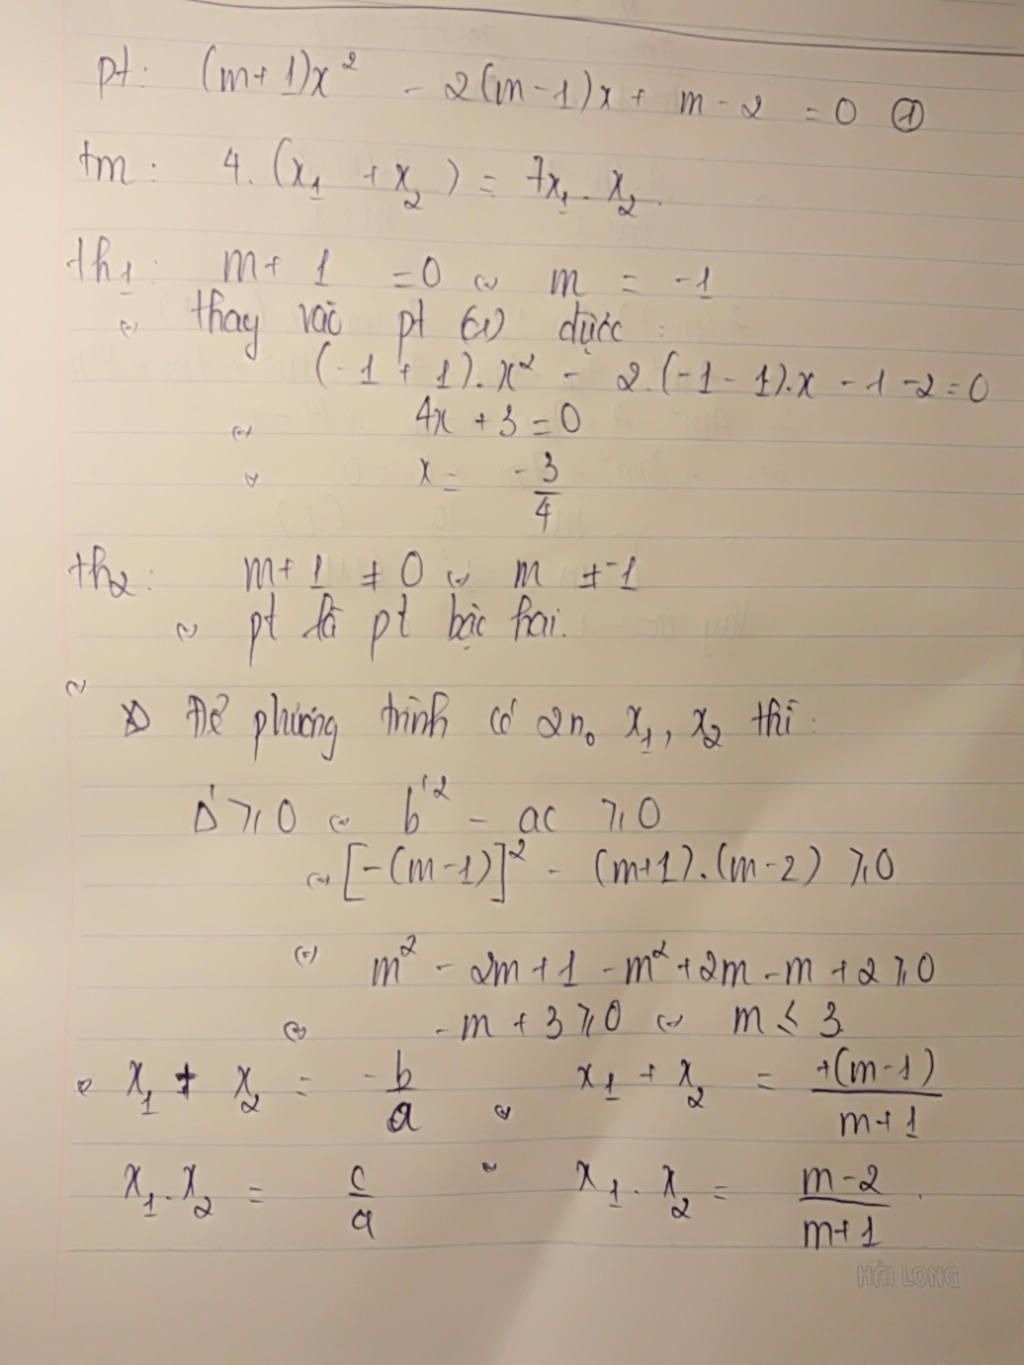 pt: (m+1)x² - 2(m-1)x + m - 2 = 0 ①
tm: 4.(x₁ + x₂) = 7x₁.x₂.
th1: m + 1 = 0 ⇔ m = -1
⇔ thay vào pt (1) được:
(-1 + 1).x² - 2.(-1-1).x - 1 - 2 = 0
⇔ 4x + 3 = 0
⇔ x = -3/4
th2: m + 1 ≠ 0 ⇔ m ≠ -1
⇔ pt là pt bậc hai.
Để phương trình có 2n₀ x₁, x₂ thì:
Δ' ⩾ 0 ⇔ b'² - ac ⩾ 0
⇔ [-(m-1)]² - (m+1).(m-2) ⩾ 0
⇔ m² - 2m + 1 - m² + 2m - m + 2 ⩾ 0
⇔ -m + 3 ⩾ 0 ⇔ m ⩽ 3
⇔ x₁ + x₂ = -b/a ⇔ x₁ + x₂ = +(m-1)/m+1
x₁.x₂ = c/a ⇔ x₁.x₂ = m-2/m+1.
HẢI LONG